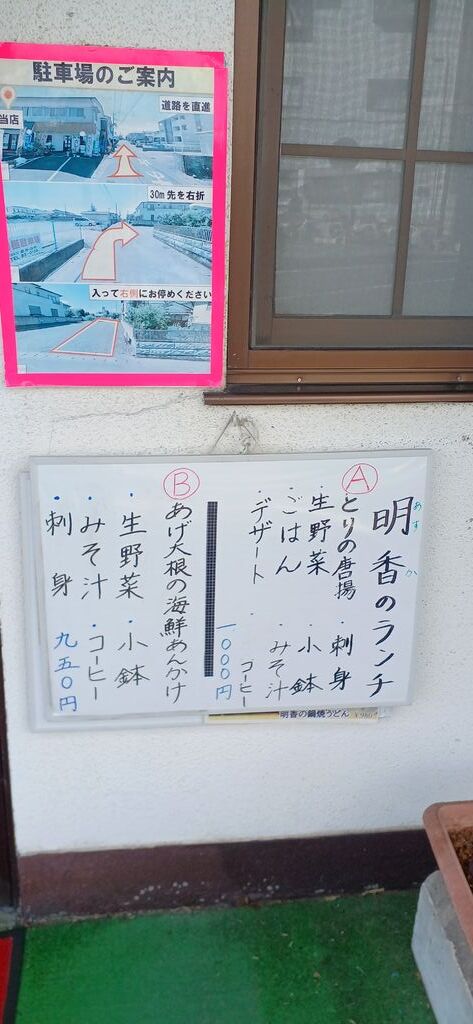 駐車場のご案内
当店
道路を直進
30m先を右折
入って右側にお停めください
明香のランチ
あすか
Ⓐ とりの唐揚 ・刺身
・生野菜 ・小鉢
・ごはん ・みそ汁
・デザート ・コーヒー
一〇〇〇円
Ⓑ あげ大根の海鮮あんかけ
・生野菜 ・小鉢
・みそ汁 ・コーヒー
・刺身 九五〇円
明香の鍋焼うどん